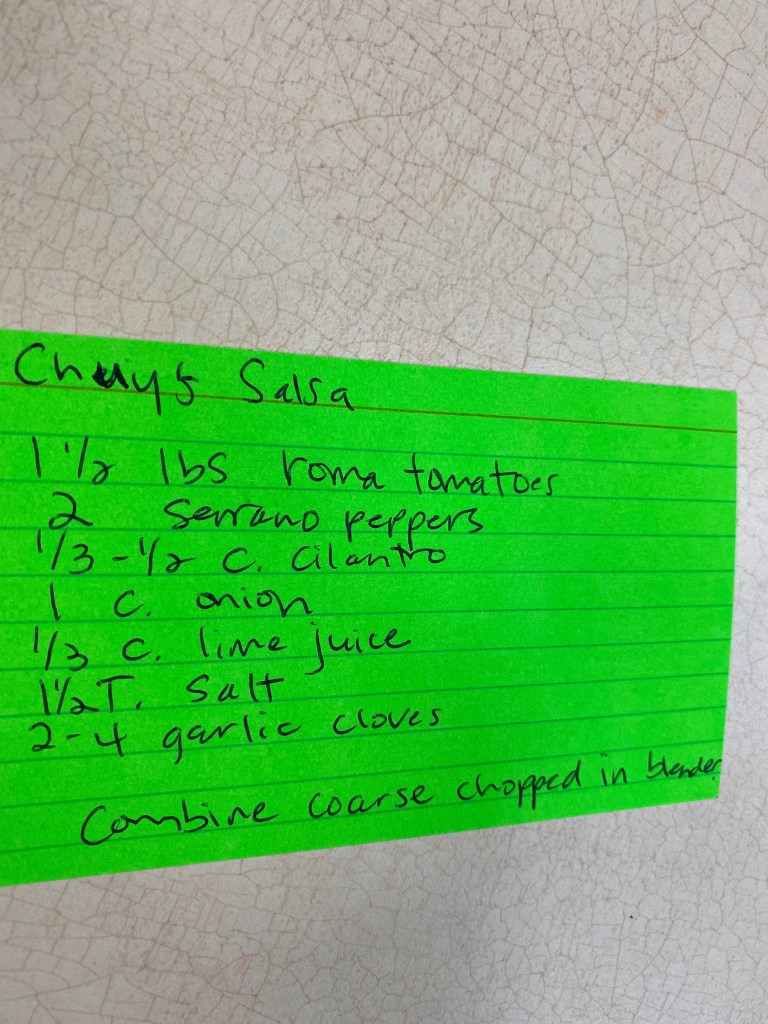 Chuy's Salsa
1 1/2 lbs roma tomatoes
2 Serrano peppers
1/3 - 1/2 c. cilantro
1 c. onion
1/3 c. lime juice
1 1/2 T. Salt
2-4 garlic cloves
Combine coarse chopped in blender